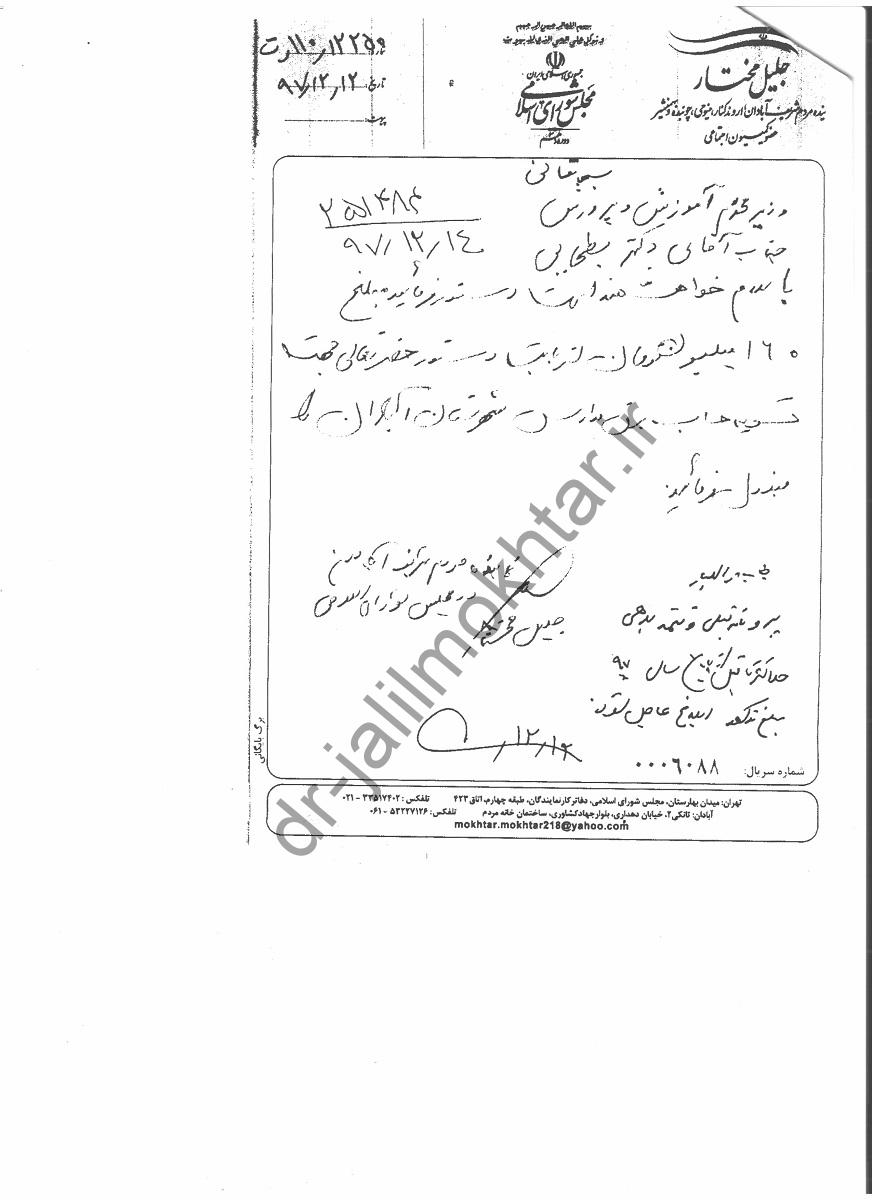 جلیل مختار
نماینده مردم شریف آبادان، اروندکنار، منیوحی، چوئبده و بهمنشیر
عضو کمیسیون اجتماعی
جمهوری اسلامی ایران
مجلس شورای اسلامی
۱۱۰/۱۲۲۵۹
تاریخ: ۹۷/۱۲/۱۲
پیوست:
بسمه تعالی
وزیر محترم آموزش و پرورش
جناب آقای دکتر بطحایی
۲۵۱۴۸۴
۹۷/۱۲/۱۴
با سلام خواهشمند است دستور فرمائید مبلغ
۱۶۰ میلیون تومان دستور حضرتعالی جهت
تسویه حساب برق مدارس شهرستان آبادان را
مبذول فرمائید
نماینده مردم شریف آبادان
در مجلس شورای اسلامی
جلیل مختار
حداکثر تا قبل از پایان سال ۹۷
شماره سریال: ۰۰۰۶۰۸۸
برگ بایگانی
تهران: میدان بهارستان، مجلس شورای اسلامی، دفاتر کار نمایندگان، طبقه چهارم، اتاق ۴۲۳ تلفکس: ۳۳۵۱۷۴۰۲ - ۰۲۱
آبادان: تانکی ۲، خیابان دهداری، بلوار جهاد کشاورزی، ساختمان خانه مردم تلفکس: ۵۳۲۲۷۱۲۶ - ۰۶۱
mokhtar.mokhtar218@yahoo.com
dr-jalilmokhtar.ir